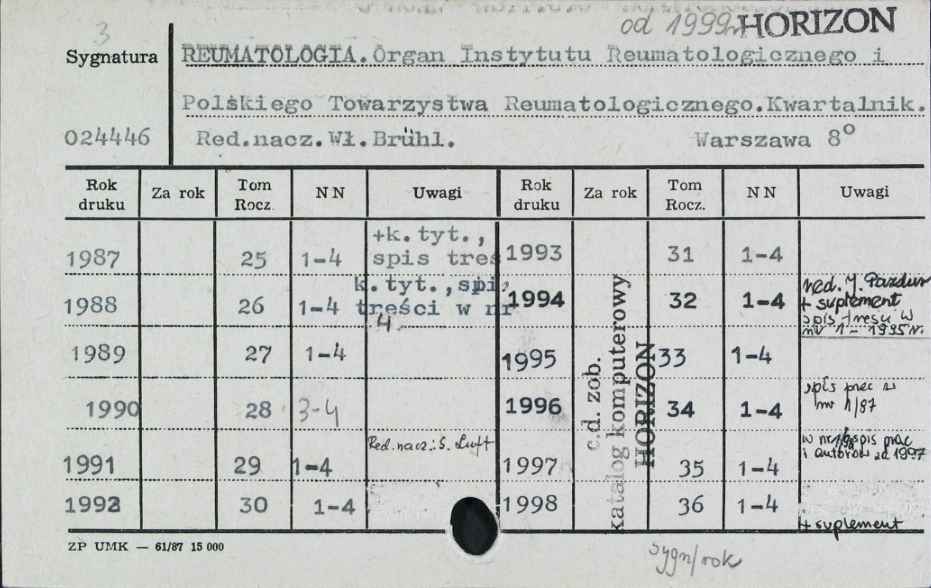 3
od 1999 HORIZON
Sygnatura
REUMATOLOGIA. Organ Instytutu Reumatologicznego i
Polskiego Towarzystwa Reumatologicznego. Kwartalnik.
024446 Red.nacz. Wł. Brühl. Warszawa 8°
Rok druku Za rok Tom Rocz. N N Uwagi Rok druku Za rok Tom Rocz. N N Uwagi
1987 25 1-4 +k. tyt., spis treś 1993 31 1-4
1988 26 1-4 k. tyt., spis treści w nr 4 1994 32 1-4 red. J. Pazdur + suplement spis treści w nr 1-1995 r.
1989 27 1-4 1995 33 1-4
1990 28 3-4 1996 34 1-4 spis prac w nr 1/97
1991 29 1-4 Red. nacz.: S. Luft 1997 35 1-4 w nr 1/98 spis prac i autorów za 1997
1992 30 1-4 1998 36 1-4 + suplement
c.d. zob.
katalog komputerowy
HORIZON
ZP UMK — 61/87 15 000
sygn/rok